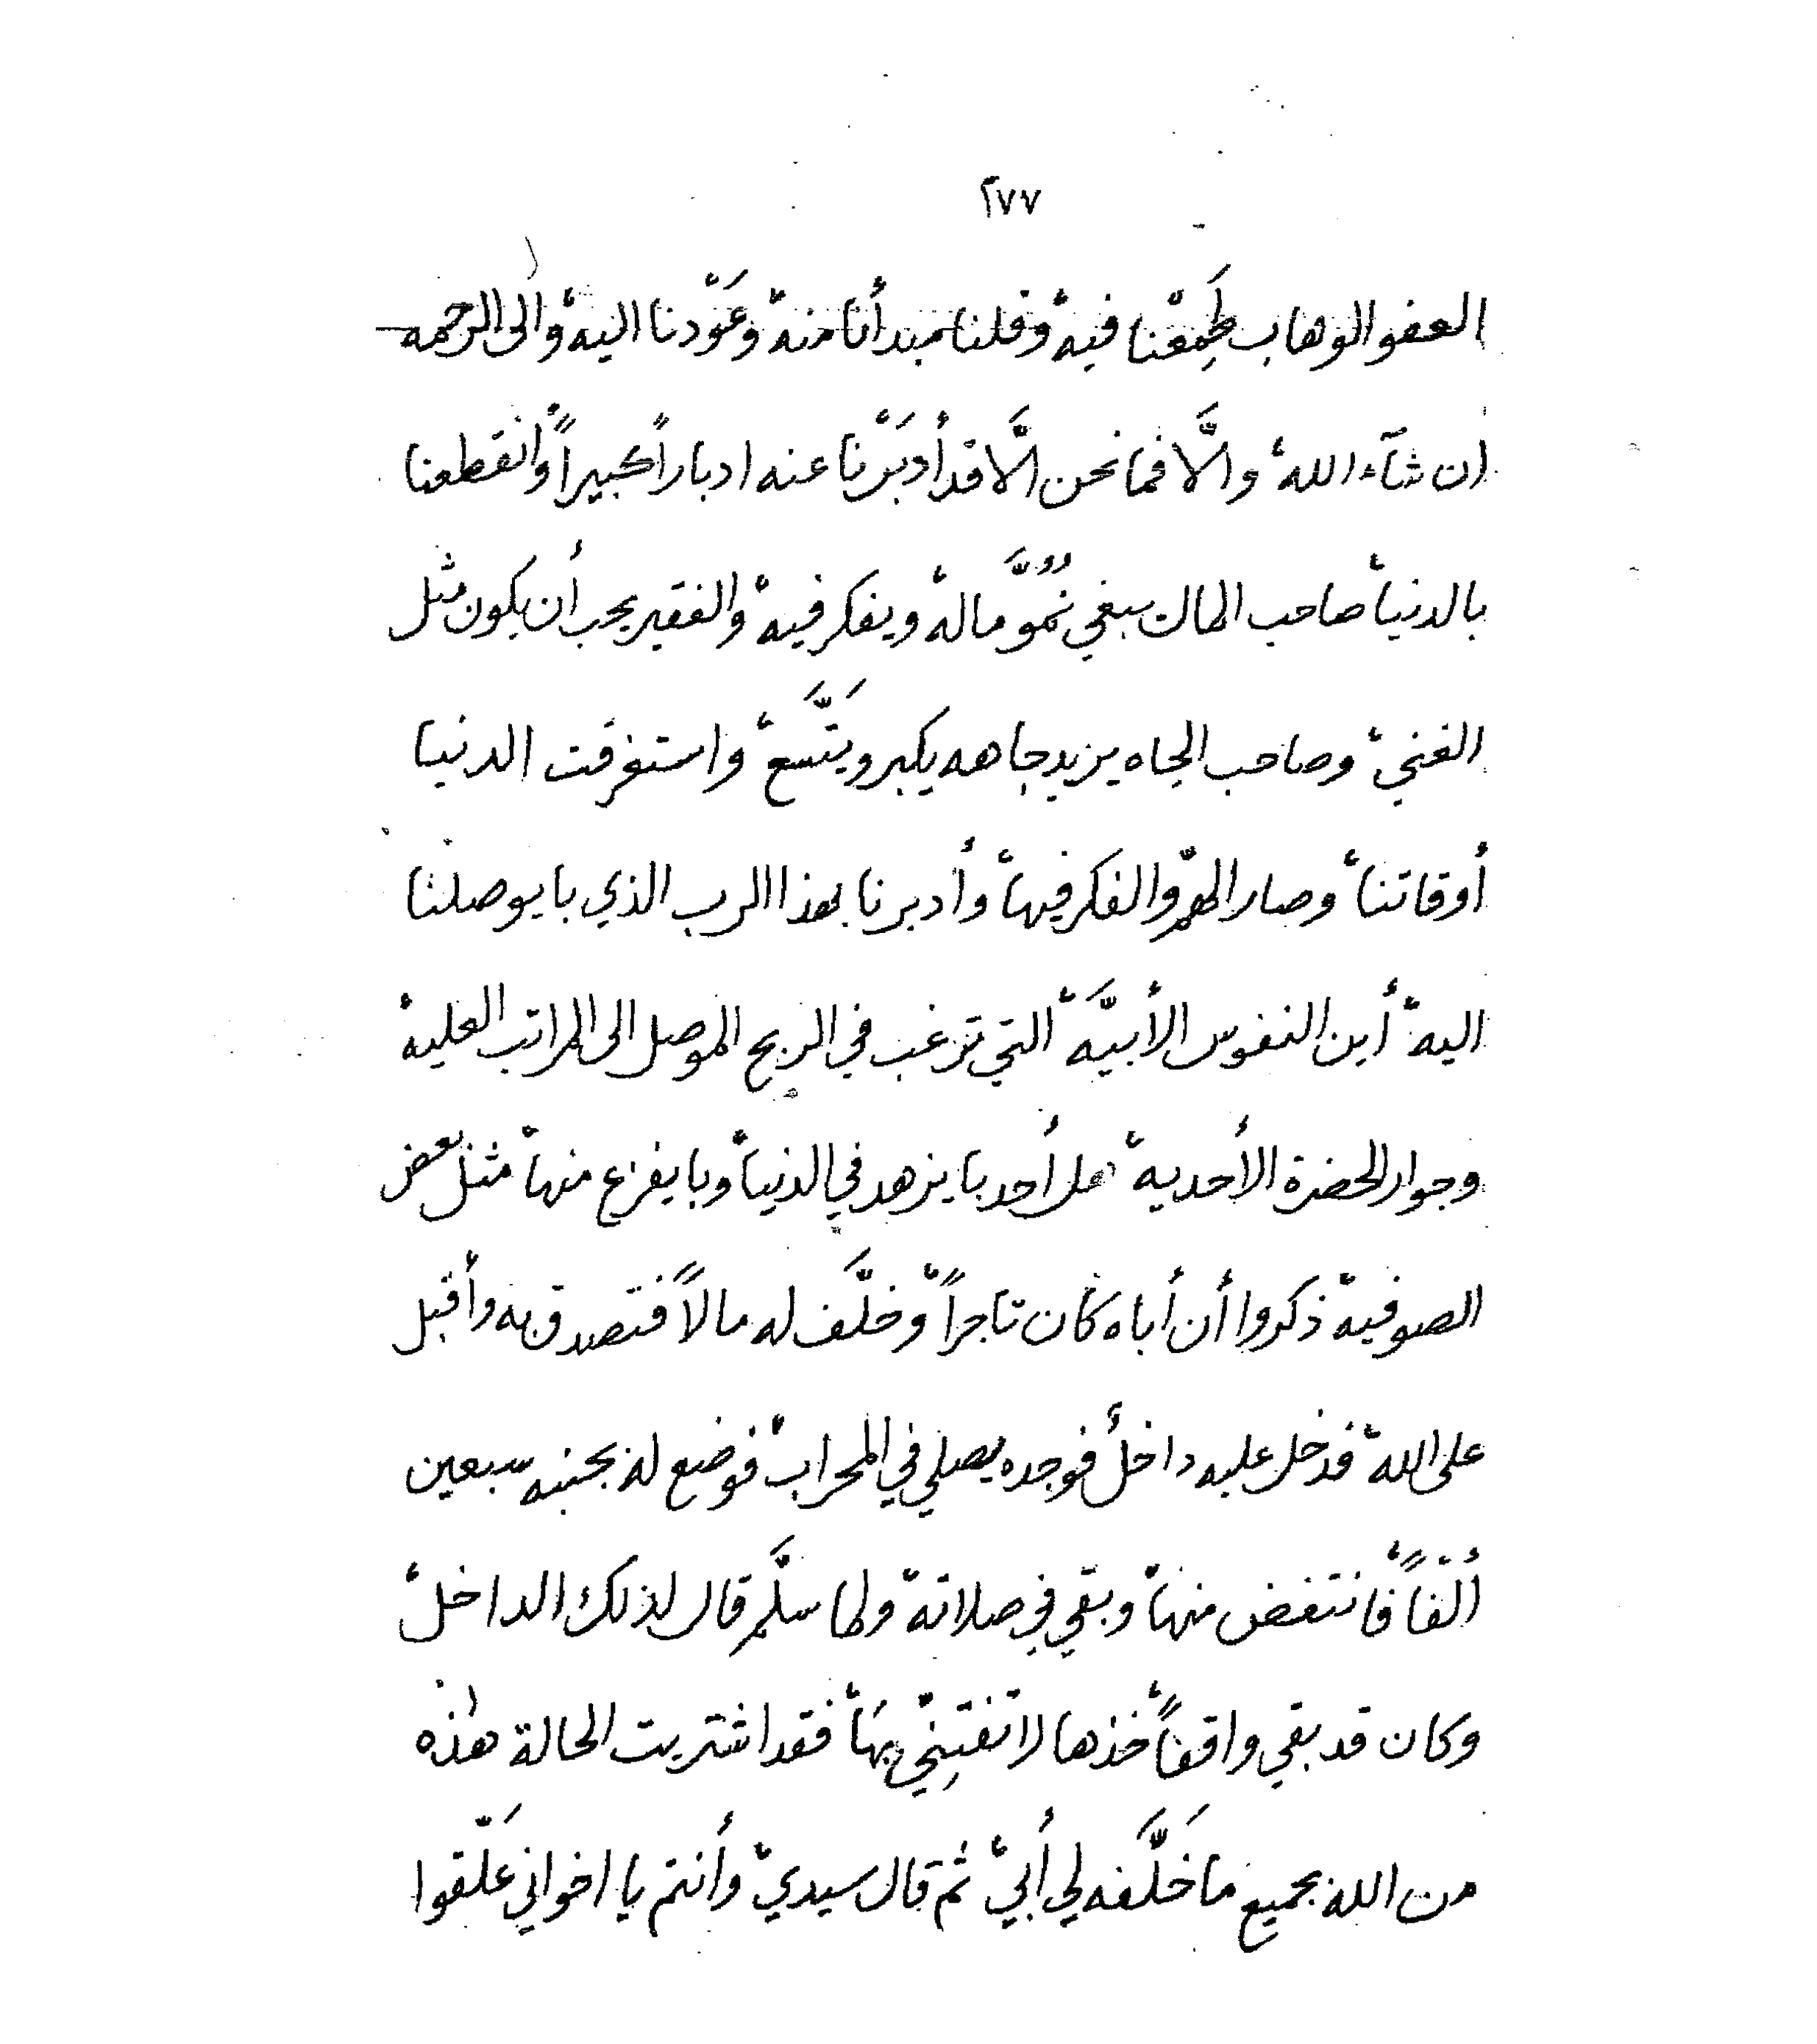 ٢٧٧
العفو الوهاب طَمِعْنا فيه، وقلنا مبدأنا منه، وعَوْدنا اليه، والى الرحمه
ان شآء الله، والَّا فما نحن الَّا قد أدبَرْنا عنه ادباراً كبيراً، وانقطعنا
بالدنيا، صاحب المال يبغي نُمُوَّ ماله، ويفكر فيه، والفقير يحب أن يكون مثل
الغني، وصاحب الجاه يزيد جاهه يكبر ويتَّسَع، واستغرقت الدنيا
أوقاتنا، وصار الهمّ والفكر فيها، وأدبرنا بهذا الرب الذي با يوصلنا
اليه، أين النفوس الأبيَّه، التي ترغب في الربح الموصل الى المراتب العليه،
وجوار الحضرة الأحديه، هل أحد با يزهد في الدنيا، وبا يفرع منها، مثل بعض
الصوفيه، ذكروا أن أباه كان تاجراً، وخلَّف له مالاً فتصدق به وأقبل
على الله، فدخل عليه داخل، فوجده يصلي في المحراب، فوضع له بجنبه سبعين
ألْفاً، فانتفض منها، وبقي في صلاته، ولما سلَّم قال لذلك الداخل،
وكان قد بقي واقفاً، خذها لا تفتِنِّي بها، فقد اشتريت الحالة هذه
من الله بجميع ما خَلَّفه لي أبي، ثم قال سيدي، وأنتم يا اخواني عَلّقوا